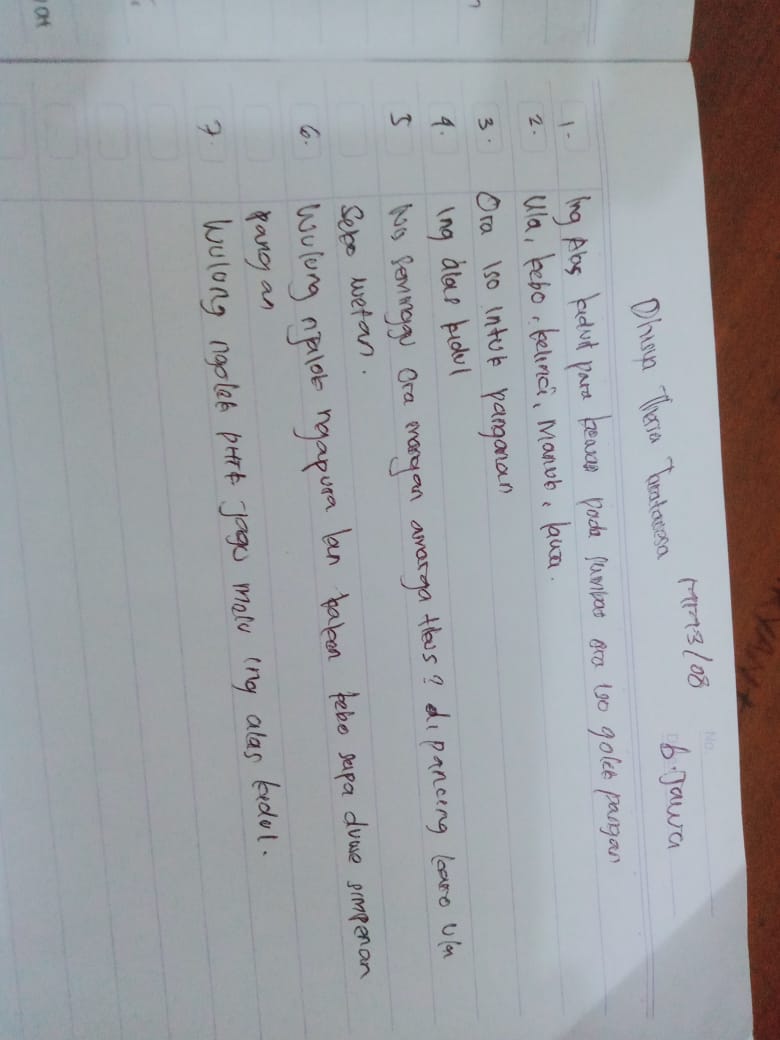 MM3/08
B. Jawa
1. Ing Alas kidul para kewan pada sambat ora iso golek pangan
2. Ula, kebo, kelinci, Manuk, lawa.
3. Ora iso intuk panganan
4. Ing alas kidul
5 Wis seminggu ora mangan amarga tikus2 di pancing karo ula
Sebo wetan.
6. Wulung njalok ngapura lan kakon kebo sapa duwe simpenan
pangan
7. Wulung ngolek pitik jago malu ing alas kidul.